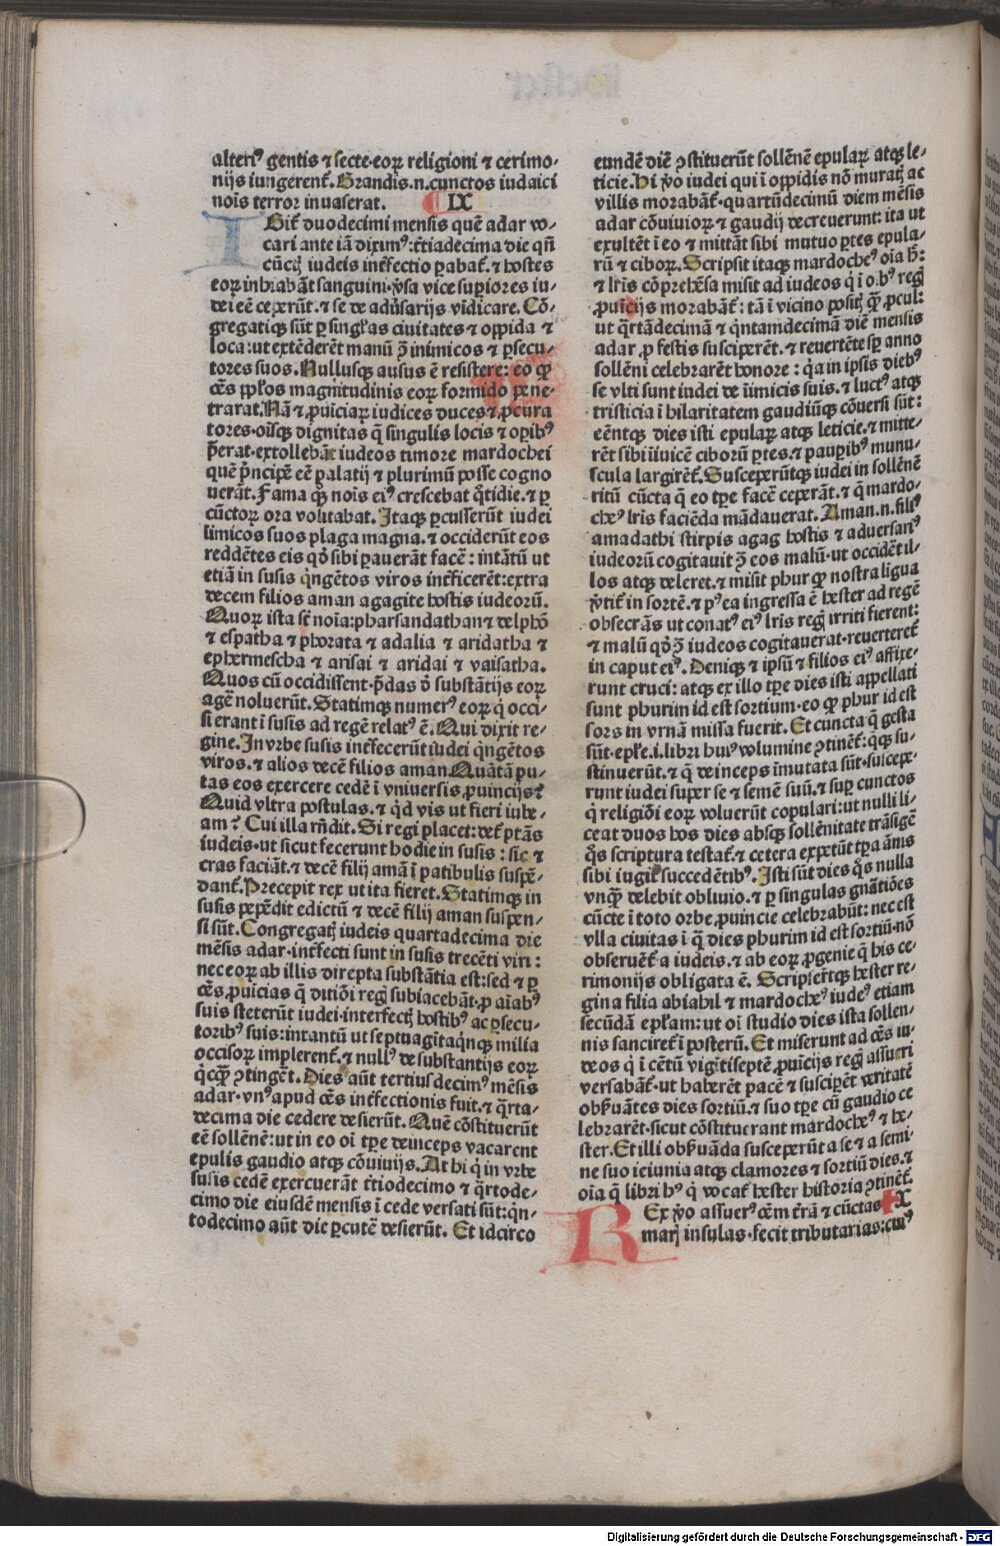 alteriꝰ gentis ⁊ secte·eoꝝ religioni ⁊ cerimo⸗
nijs iungerent̄. Grandis.n.cunctos iudaici
nois̄ terror inuaserat. IX
IGit̄ duodecimi mensis quē adar vo⸗
cari ante iā diximꝰ:t̄tiadecima die qn̄
cūct; iudeis int̄fectio ꝑabat̄.⁊ hostes
eoꝝ inhiabāt sanguini·v̓sa vice suꝑiores iu⸗
dei eē ceꝑūt.⁊ se de adv̓sarijs vīdicare. Cō⸗
gregatiqꝫ sūt ꝑ singl̓as ciuitates ⁊ oppida ⁊
loca:ut extēderēt manū ꝯ̄ inimicos ⁊ ꝑsecu⸗
tores suos. Nullusqꝫ ausus ē resistere: eo ꝙ
cēs ppl̓os magnitudinis eoꝝ formido pene⸗
trarat.Nā ⁊ ꝓuīciaꝝ iudices duces⁊ ꝓcura
tores·oīsqꝫ dignitas q̄ singulis locis ⁊ oꝑibꝰ
p̄erat·extollebāt iudeos timore mardochei
quē p̓ncipē eē palatij ⁊ plurimū posse cogno
uerāt. Fama qꝫ nois̄ eiꝰ crescebat q̓tidie.⁊ ꝑ
cūctoꝝ ora volitabat. Itaqꝫ ꝑcusserūt iudei
īimicos suos plaga magna.⁊ occiderūt eos
reddētes eis qd̓ sibi ꝑauerāt facē̓: intātū ut
etiā in susis q̓ngētos viros int̄ficerēt:extra
decem filios aman agagite hostis iudeorū.
Quoꝝ ista st̄ noīa:pharsandathan⁊ delphō
⁊ espatha ⁊ phorata ⁊ adalia ⁊ aridatha ⁊
ephermescha ⁊ arisai ⁊ aridai ⁊ vaisatha.
Quos cū occidissent·p̄das d̓ substātijs eoꝝ
agē̓ noluerūt. Statimqꝫ numerꝰ eoꝝ q̓ occi⸗
si erant ī susis ad regē relatꝰ ē. Qui dixit re⸗
gine.In vrbe susis int̄fecerūt iudei q̓ngētos
viros.⁊ alios decē filios aman.Quātā pu⸗
tas eos exercere cedē ī vniuersis ꝓuincijs?
Quid vltra postulas.⁊ q̓d vis ut fieri iube⸗
am? Cui illa rn̄dit. Si regi placet:det̄ ptās
iudeis·ut sicut fecerunt hodie in susis: sic ⁊
cras faciāt.⁊ decē filij amā ī patibulis suspē⸗
dant̄.Precepit rex ut ita fieret. Statimqꝫ in
susis pepēdit edictū ⁊ decē filij aman suspen⸗
si sūt.Congregat; iudeis quartadecima die
mēsis adar·int̄fecti sunt in susis trecēti viri:
nec eoꝝ ab illis direpta substātia est:sed ⁊ ꝑ
cēs ꝓuīcias q̄ ditiōi reg; subiacebāt·ꝓ aīabꝰ
suis steterūt iudei·interfect; hostibꝰ ac ꝑsecu⸗
toribꝰ suis:intantū ut septuagītaq̓nqꝫ milia
occisoꝝ implerent̄.⁊ nullꝰ de substantijs eoꝝ
q̓cꝙ̄ ꝯtingēt. Dies aūt tertiusdecimꝰ mēsis
adar·vnꝰ apud cēs int̄fectionis fuit.⁊ q̄rta⸗
decima die cedere desierūt. Quē cōstituerūt
eē sollēnē:ut in eo oī tꝑe deinceps vacarent
epulis gaudio atqꝫ cōuiuijs. At hi q̓ in vrbe
susis cedē exercuerāt t̄tiodecimo ⁊ q̄rtode⸗
cimo die eiusdē mensis ī cede versati sūt:q̓n⸗
todecimo aūt die ꝑcutē̓ desierūt. Et idcirco
eundē diē ꝯstituerūt sollēnē epulaꝝ atqꝫ le⸗
ticie.Hi v̓o iudei qui ī oppidis nō murat; ac
villis morabāt̄·quartūdecimū diem mēsis
adar cōuiuioꝝ ⁊ gaudij decreuerunt: ita ut
exultēt ī eo ⁊ mittāt sibi mutuo ꝑtes epula⸗
rū ⁊ ciboꝝ. Scripsit itaqꝫ mardocheꝰ oīa h̓:
⁊ lr̄is cōprehēsa misit ad iudeos q̓ ī oībꝰ reg;
ꝓuīcijs morabāt̄: tā ī vicino posit; ꝙ̄ ꝓcul:
ut q̄rtādecimā ⁊ q̓ntamdecimā diē mensis
adar ꝓ festis susciperēt.⁊ reuertēte sꝑ anno
sollēni celebrarēt honore: q̓a in ipsis diebꝰ
se vlti sunt iudei de īimicis suis.⁊ luctꝰ atqꝫ
tristicia ī hilaritatem gaudiūqꝫ cōuersi sūt:
eēntqꝫ dies isti epulaꝝ atqꝫ leticie.⁊ mitte⸗
rēt sibi īuicē ciborū ꝑtes.⁊ pauꝑibꝰ munu⸗
scula largirēt̄. Susceperūtqꝫ iudei in sollēnē
ritū cūcta q̄ eo tꝑe facē̓ ceperāt.⁊ q̄ mardo⸗
cheꝰ lr̄is faciēda mādauerat. Aman.n.filꝰ
amadathi stirpis agag hostis ⁊ aduersariꝰ
iudeorū cogitauit ꝯ̄ eos malū·ut occidēt il⸗
los atqꝫ deleret.⁊ misit phur ꝙ nostra ligua
v̓tit̄ in sortē.⁊ pꝰea ingressa ē hester ad regē
obsecrās ut conatꝰ eiꝰ lr̄is reg; irriti fierent:
⁊ malū qd̓ ꝯ̄ iudeos cogitauerat·reuerteret̄
in caput eiꝰ. Deniqꝫ ⁊ ipsū ⁊ filios eiꝰ affixe⸗
runt cruci: atqꝫ ex illo tꝑe dies isti appellati
sunt phurim id est sortium·eo ꝙ phur id est
sors in vrnā missa fuerit. Et cuncta q̄ gesta
sūt·epl̓e.i.libri huiꝰ volumine ꝯtinēt̄:q̄qꝫ su⸗
stinuerūt.⁊ q̄ deinceps īmutata sūt·suscepe⸗
runt iudei super se ⁊ semē suū.⁊ suꝑ cunctos
q̓ religiōi eoꝝ voluerūt copulari:ut nulli li⸗
ceat duos hos dies absqꝫ sollēnitate trāsigē̓
q̄s scriptura testat̄.⁊ cetera expetūt tꝑa ānis
sibi iugit̄ succedētibꝰ. Isti sūt dies q̄s nulla
vnꝙ̄ delebit obliuio.⁊ ꝑ singulas gn̄atiōes
cūcte ī toto orbe ꝓuincie celebrabūt: nec est
vlla ciuitas ī q̄ dies phurim id est sortiū·nō
obseruēt̄ a iudeis.⁊ ab eoꝝ ꝓgenie q̄ his ce⸗
rimonijs obligata ē. Scripserūtqꝫ hester re⸗
gina filia abiahil ⁊ mardocheꝰ iudeꝰ etiam
secūdā epl̓am: ut oī studio dies ista sollen⸗
nis sanciret̄ ī posterū. Et miserunt ad cēs iu⸗
deos q̓ ī cētū vigīntiseptē ꝓuīcijs reg; assueri
versabāt̄·ut haberēt pacē ⁊ susciꝑēt veritatē
obs̓uātes dies sortiū.⁊ suo tꝑe cū gaudio ce
lebrarēt·sicut cōstituerant mardocheꝰ ⁊ he⸗
ster. Et illi obs̓uāda susceperūt a se ⁊ a semi⸗
ne suo ieiunia atqꝫ clamores ⁊ sortiū dies.⁊
oīa q̄ libri hꝰ q̓ vocat̄ hester historia ꝯtinēt̄.
REx v̓o assuerꝰ oēm t̄rā ⁊ cūctas X
mar; insulas·fecit tributarias:cuiꝰ
Digitalisierung gefördert durch die Deutsche Forschungsgemeinschaft - DFG